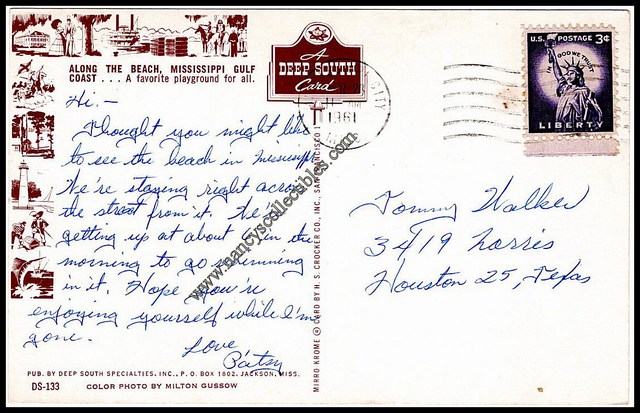 ALONG THE BEACH, MISSISSIPPI GULF
COAST . . . A favorite playground for all.
A
DEEP SOUTH
Card
U.S. POSTAGE 3¢
IN GOD WE TRUST
LIBERTY
CITY
1961
Hi. —
Thought you might like
to see the beach in Mississippi.
We're staying right across
the street from it. We're
getting up at about 6 in the
morning to go swimming
in it. Hope you're
enjoying yourself while I'm
gone.
Love
Patsy
Tommy Walker
3419 Norris
Houston 25, Texas
www.nancyscollectibles.com
MIRRO-KROME ® CARD BY H. S. CROCKER CO., INC., SAN FRANCISCO 1
PUB. BY DEEP SOUTH SPECIALTIES, INC., P. O. BOX 1802, JACKSON, MISS.
DS-133 COLOR PHOTO BY MILTON GUSSOW